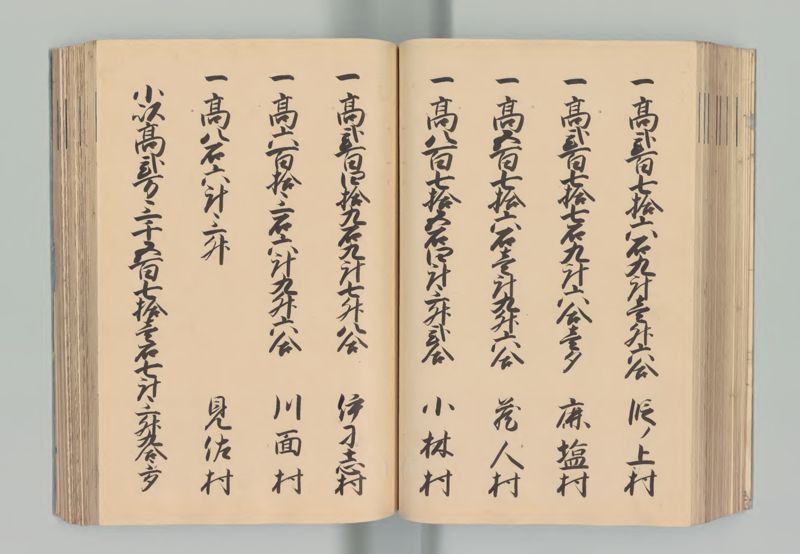 一高弐百七拾六石九斗壱升六合 ノ上村
一高弐百七拾七石九斗六合壱夕 塩村
一高五百七拾六石壱斗九升六合 蔵人村
一高八百七拾五石四斗三升弐合 小林村
一高弐百四拾九石九斗七升八合 伊孑志村
一高六百拾三石六斗九升六合 川面村
一高八石六斗三升 見佐村
小以高弐万三千五百七拾壱石七斗三升九合